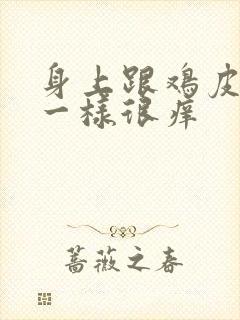 身上跟鸡皮
一样很痒
蔷薇之春